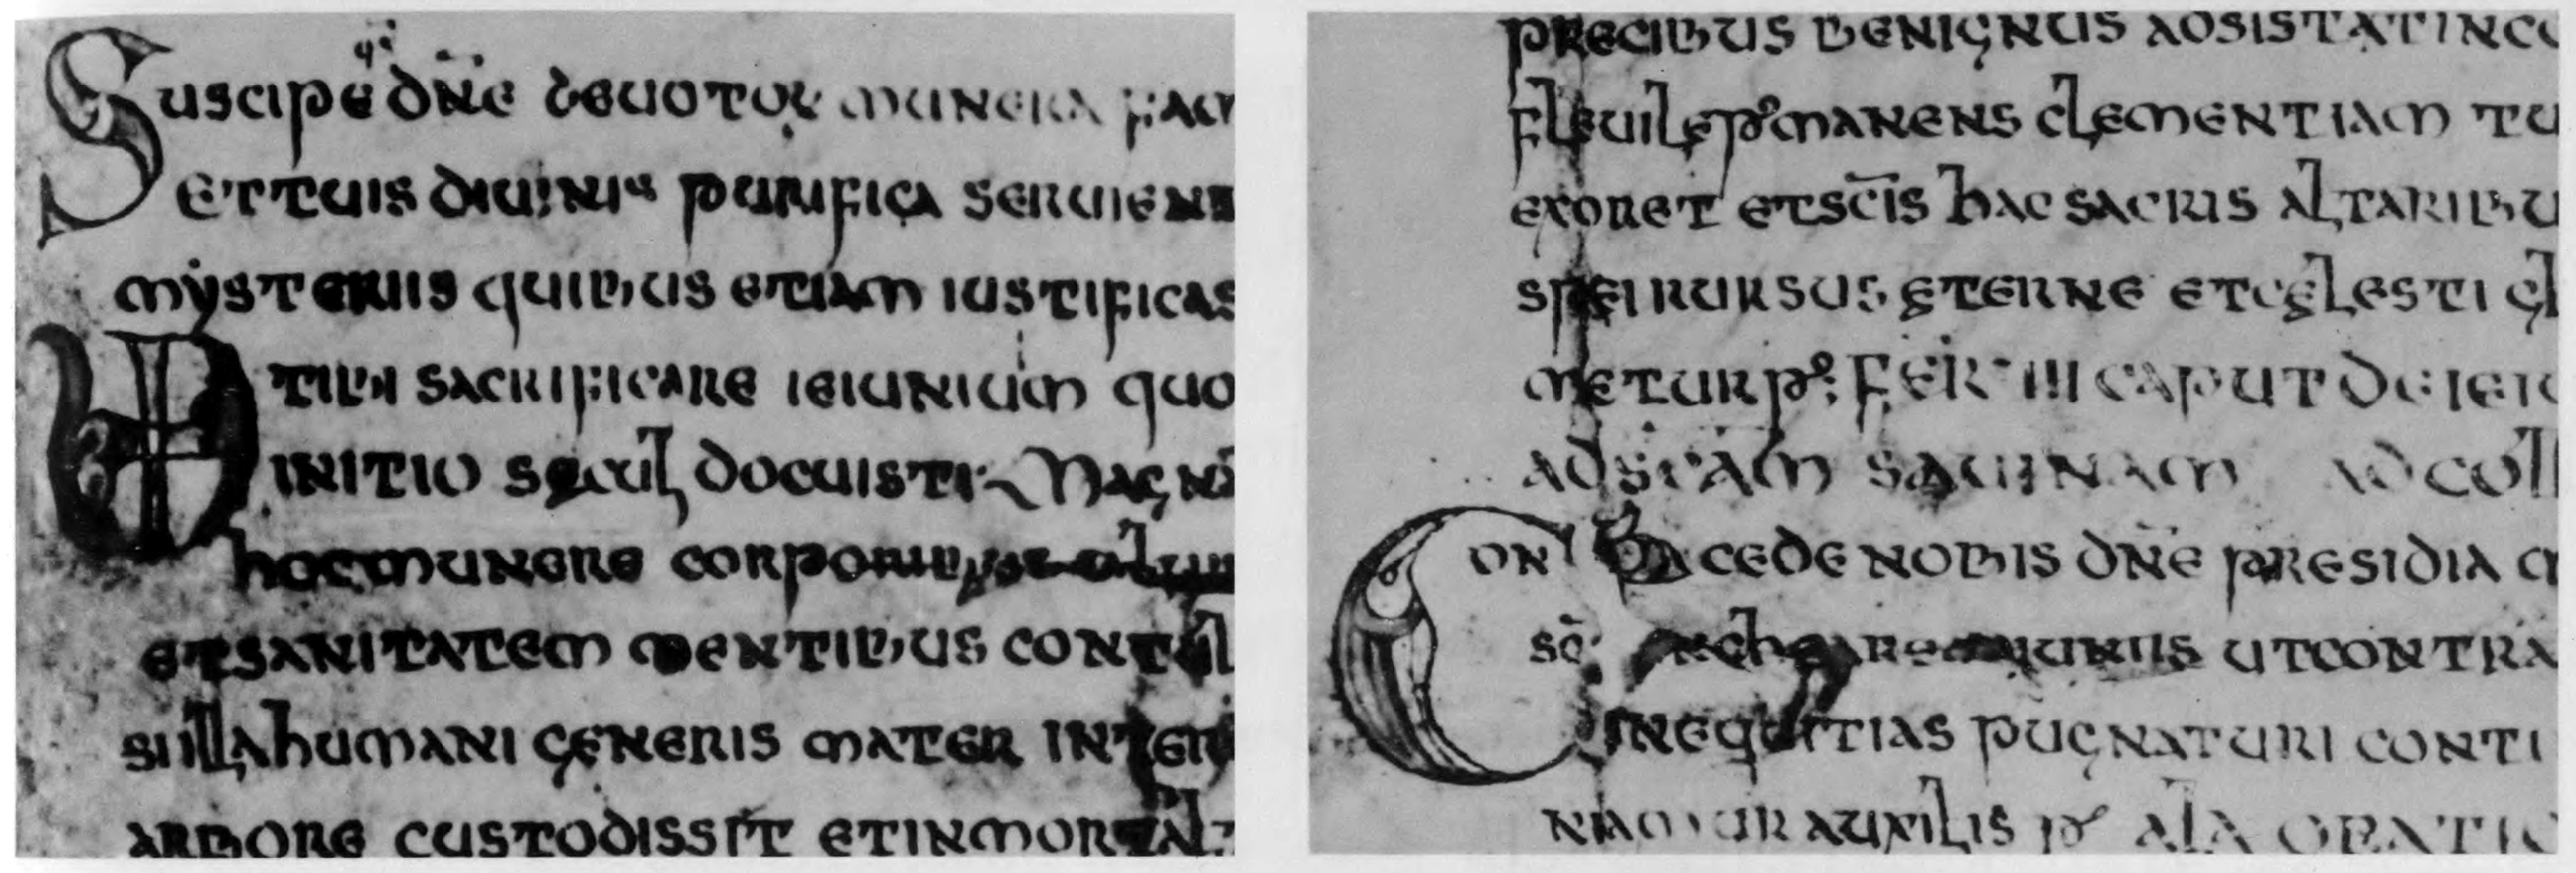 Suscipe qs dne deuotor munera fam
ET TUIS DIUINIS purifica seruiens
mysteriis quibus etiam iustificas
UD TIbi sacrificare ieiunium quo
INITIO seculi docuisti Magni
hoc munere corporib;
et sanitatem mentib;us contul
si illa humani generis mater inter
arbore custodissit et inmortal
precibus benignus adsistat inco
flebile permanens clementiam tu
exoret et scis hac sacris altarib;u
spei rursus eterne et celesti
metur p FER IIII CAPUT DE IEIU
AD SCAM SAUINAM AD COLL
CON CEDE NOBIS DNE PRESIDIA
UT CONTRA
INEQUITIAS PUGNATURI CONTI
AUXILIIS p ALA ORATIO